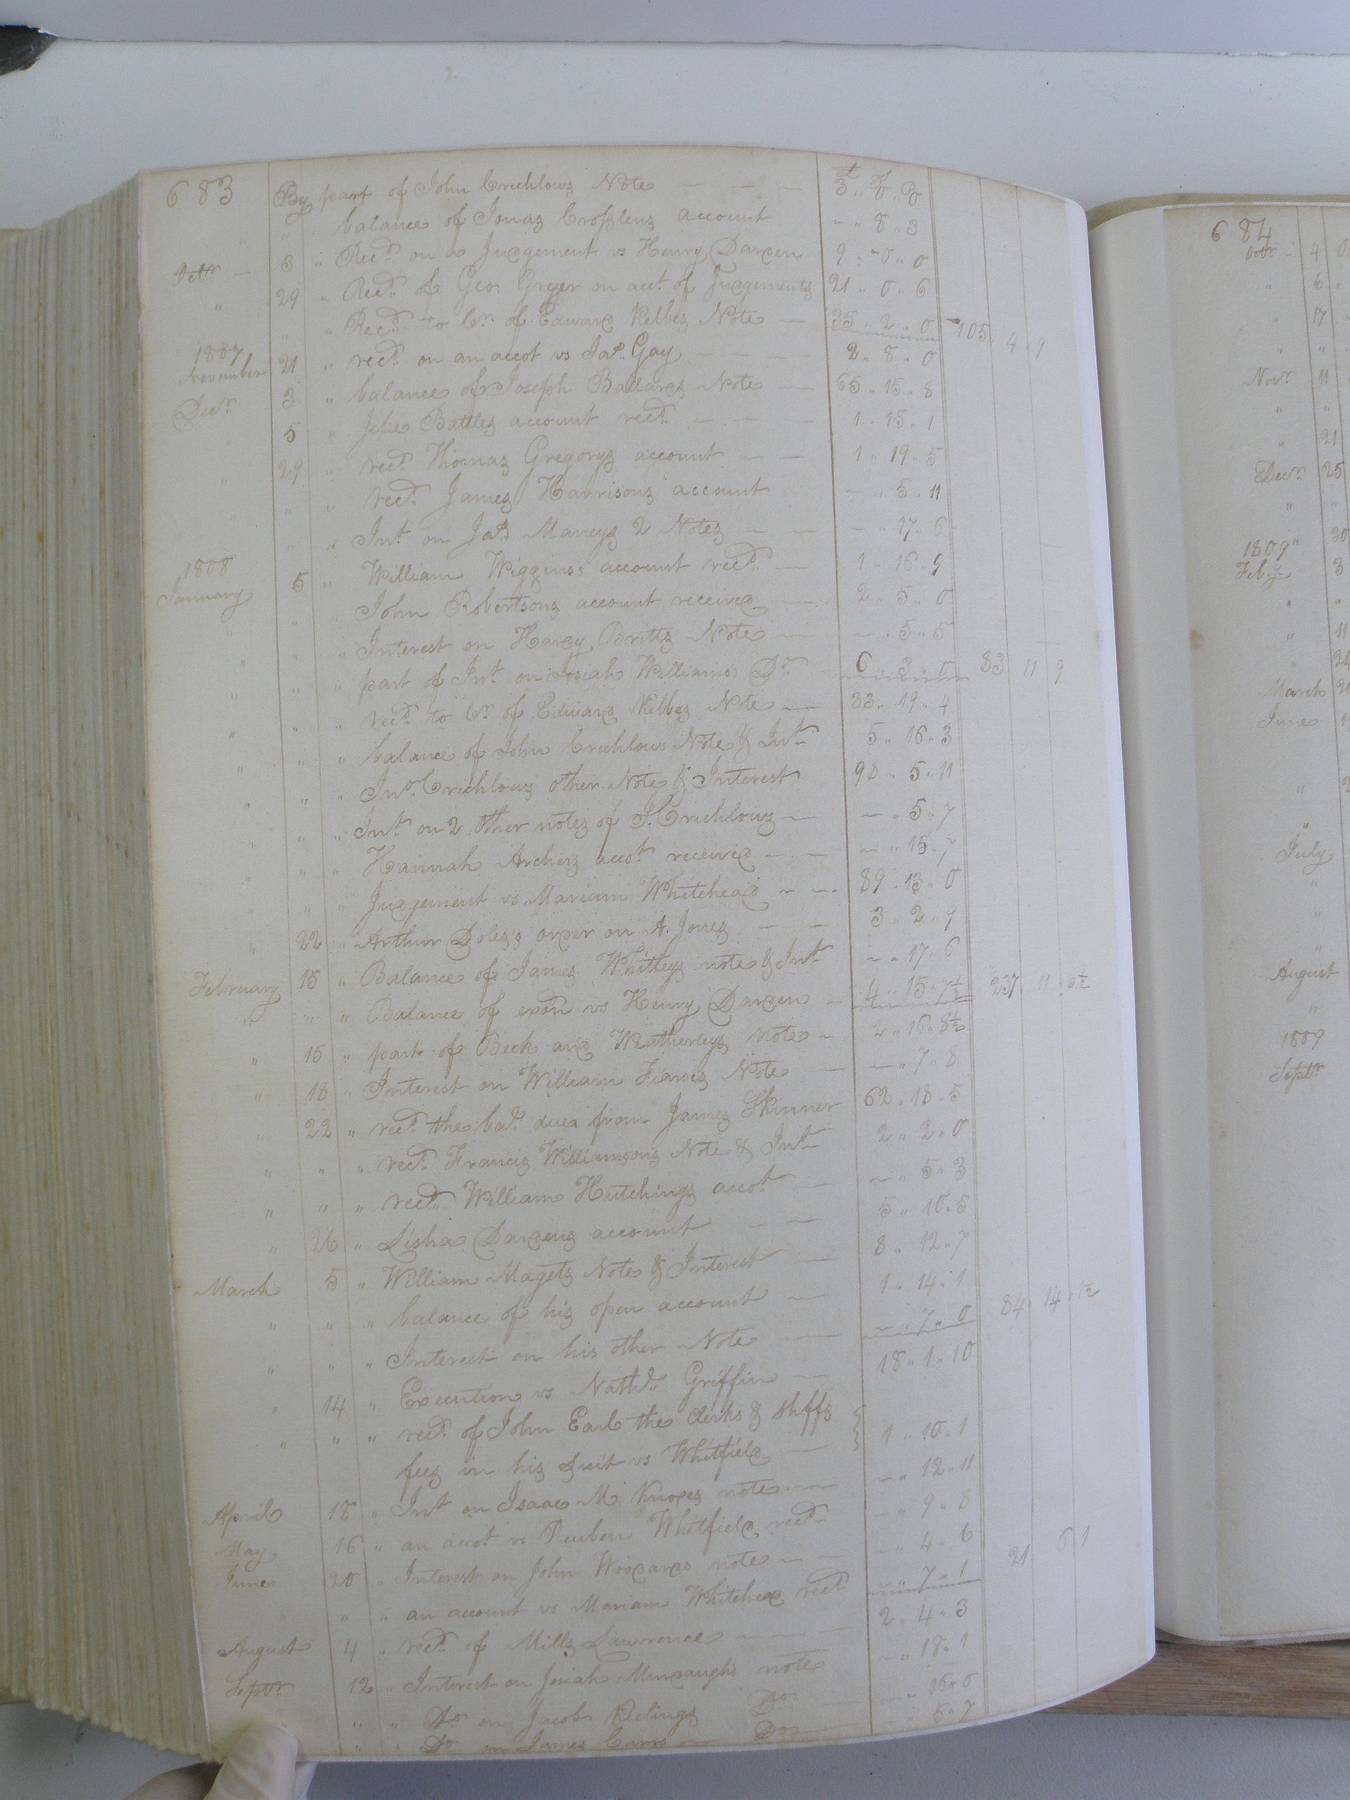 683 By part of John Crichlows Note — — — 3 " 8 " 8
" " balance of Jonas Crosslens account — " 8 " 3
Octr — 8 " Recd on a Judgement vs Henry Darden 9 " 0 " 0
" 29 " Recd of Geo: Gryer on acct of Judgements 21 " 0 " 6
" " Recd to Cr of Edward Kelbes Note — 35 " 2 " 0 105 " 4 " 9
1807
November 21 " recd on an accot vs Jas Gay — — — 2 " 8 " 0
Decr 3 " balance of Joseph Ballards Note — 65 " 15 " 8
" 5 " Battles account recd — — — 1 " 15 " 1
" 29 " recd Thomas Gregorys account — — 1 " 19 " 5
" " " recd James Harrisons account — " 5 " 11
" " Int on Jas Maneys 2 Notes — — — " 17 " 6
1808
January 5 " William Wiggins's account recd — 1 " 16 " 9
" " " John Robertsons account received — 2 " 5 " 0
" " " Interest on Hardy Britts Note — — " 5 " 5
" " " part of Int on Josiah Williams's Do 6 " 3 " 0 83 11 9
" " " recd to Cr of Edward Kelbes Note — 33 " 19 " 4
" " " balance of John Crichlows Note & Int 5 " 16 " 3
" " " Jno Crichlows other Note & Interest 98 " 5 " 11
" " " Int on 2 other notes of J. Crichlows — — " 5 " 7
" " " Hannah Archers accot received — — — " 15 " 7
" " " Judgement vs Mariam Whitehead — — 89 " 13 " 0
" 22 " Arthur Doles's order on A. Jones — — 3 " 2 " 9
February 15 " Balance of James Whitleys note & Int — " 17 " 6
" " " Balance of exon vs Henry Darden — 4 " 15 " 7½ 237 11 6½
" 15 " part of Beck and Weatherleys note — 2 " 16 " 8½
" 18 " Interest on William Note — — " 7 " 8
" 22 " recd the bal. due from James Skinner 62 " 18 " 5
" " " recd Francis Williamsons Note & Int 2 " 2 " 0
" " " recd William Hutchings accot — — " 5 " 3
" 26 " Lisha Dardens account — — 5 " 10 " 5
March 5 " William Magets Note & Interest — 8 " 12 " 7
" " " balance of his open account — 1 " 14 " 1
" " " Interest on his other Note — — " 7 " 0 84 " 14 " 1½
" 14 " Execution vs Nathl Griffin — 18 " 1 " 10
" " " recd of John Earl the clerks & shffs
fees in his Suit vs Whitfield — 1 " 10 " 1
April 18 " Int on Isaac M. note. — — " 12 " 11
May 16 " an accot vs Reuben Whitfield recd — " 9 " 8
June 20 " Interest on John Woodards note — — — " 4 " 6
" " " an account vs Mariam Whitehead recd — " 7 " 1 21 6 1
August 4 " recd of Mills Lawrence — — — 2 " 4 " 3
Septr 12 " Interest on Josiah Murdaughs note — " 18 " 1
" " " Do on Jacob Kelings Do — — " 16 " 0
" " Do on James Do — — " 5 " 7
684
Octr " 4
" 6 "
" 17 "
" "
Novr 11
" "
" 21
Decr 25
" "
30
1809
Feby 3
" "
" 11
" 24
March
June
"
"
July
"
"
"
August
"
1809
Septr